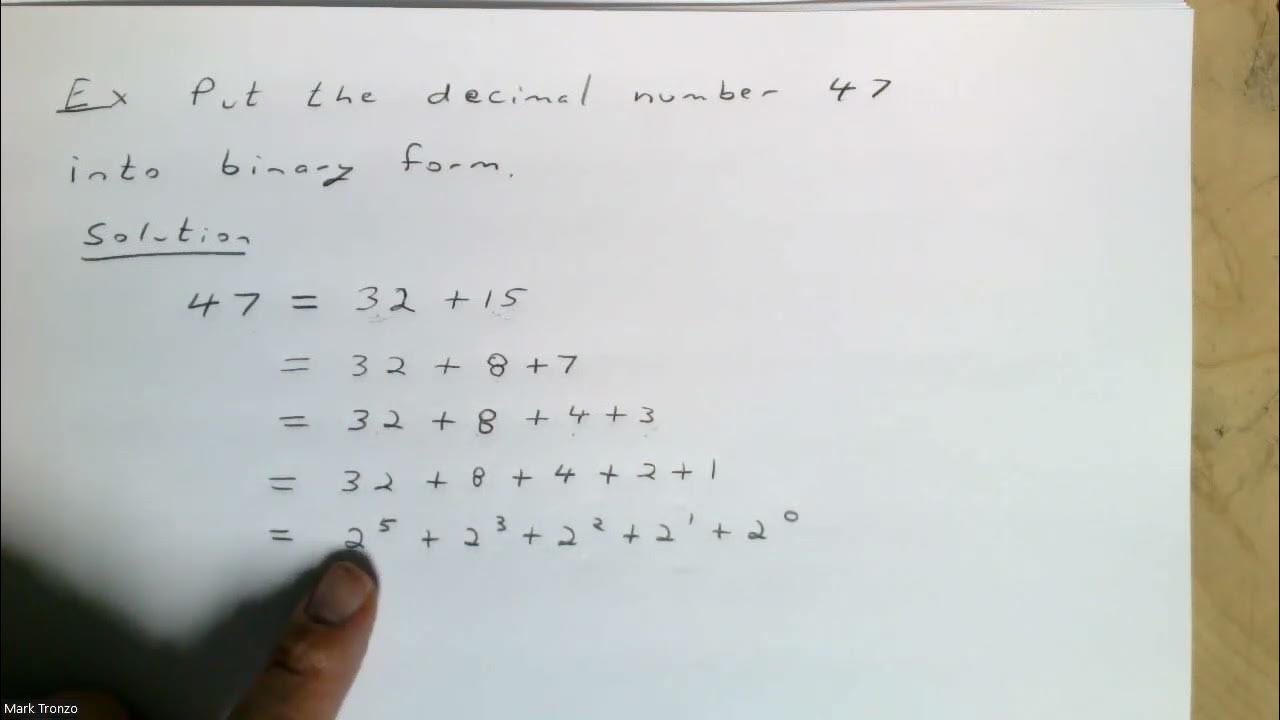 Ex Put the decimal number 47
into binary form.
Solution
47 = 32 + 15
= 32 + 8 + 7
= 32 + 8 + 4 + 3
= 32 + 8 + 4 + 2 + 1
= 2⁵ + 2³ + 2² + 2¹ + 2⁰
Mark Tronzo